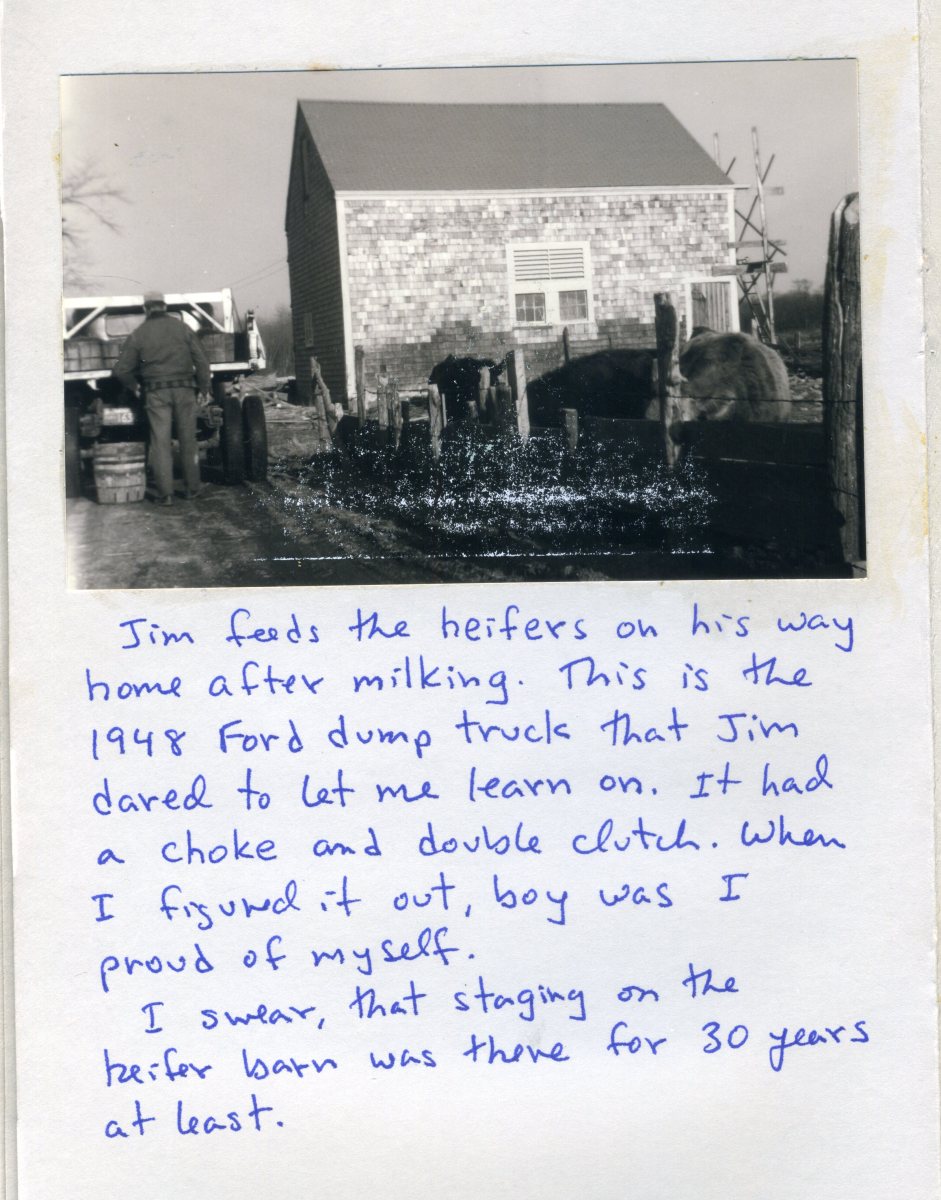 Jim feeds the heifers on his way
home after milking. This is the
1948 Ford dump truck that Jim
dared to let me learn on. It had
a choke and double clutch. When
I figured it out, boy was I
proud of myself.
I swear, that staging on the
heifer barn was there for 30 years
at least.